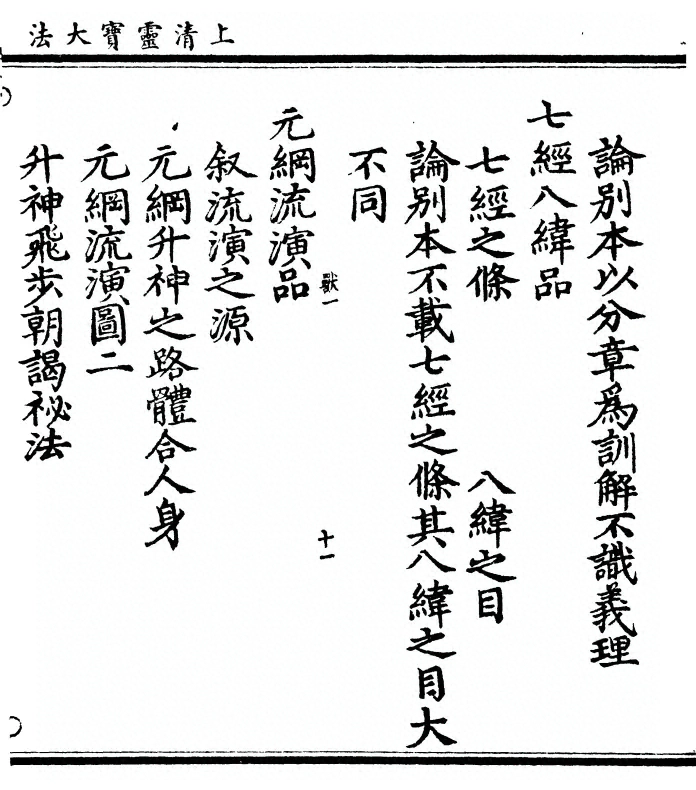 上清靈寶大法
論別本以分章爲訓解不識義理
七經八緯品
七經之條 八緯之目
論別本不載七經之條其八緯之目大
不同
獸一 十一
元綱流演品
叙流演之源
元綱升神之路體合人身
元綱流演圖二
升神飛步朝謁祕法